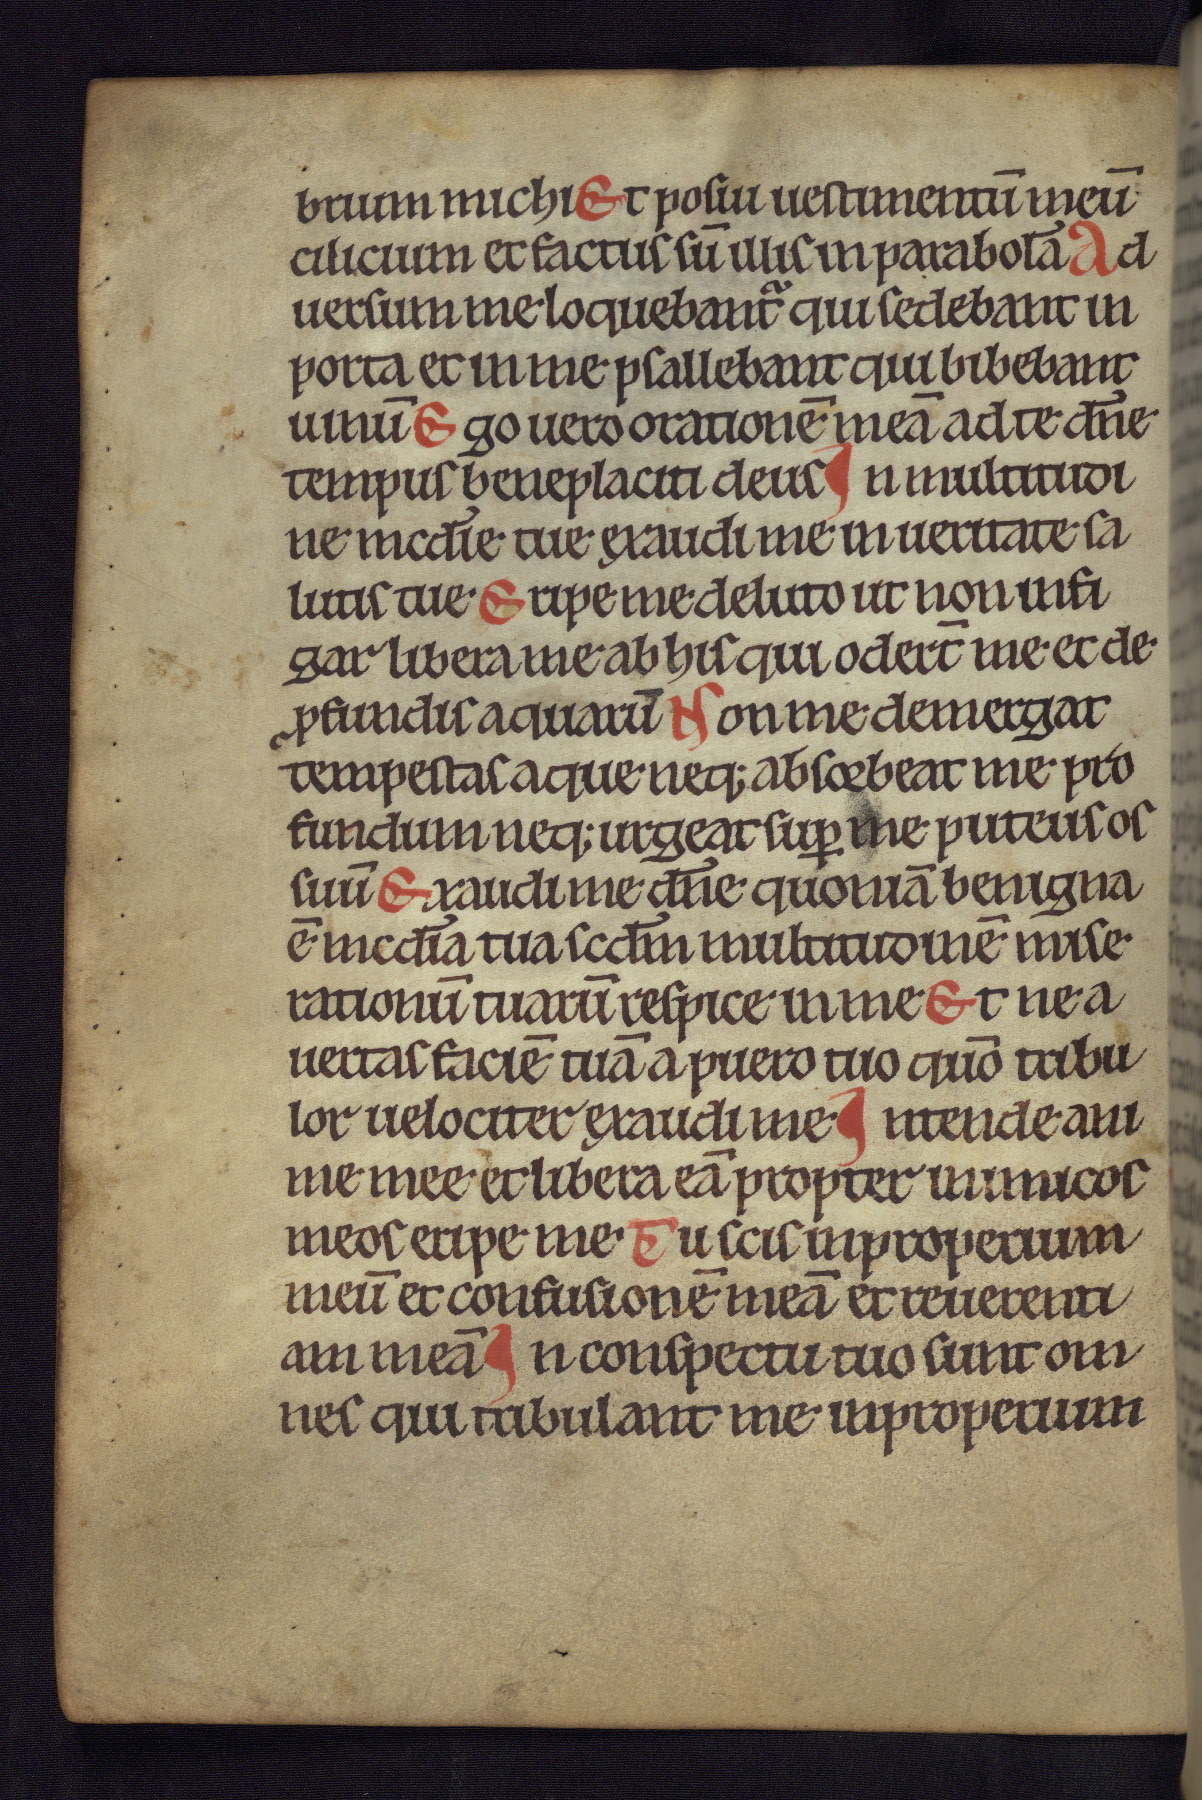 brium michi Et posiu uestimentū meū
cilicium et factus sū illis in parabolā Ad
uersum me loquebant᷑ qui sedebant in
porta et in me psallebant qui bibebant
uinū Ego uero orationē meā ad te dn̄e
tempus beneplaciti deus In multitudi
ne mcd̄ie tue exaudi me in ueritate sa
lutis tue Eripe me de luto ut non infi
gar libera me ab his qui odert̄ me et de
ꝓfundis aquarū Non me demergat
tempestas aque neq; absorbeat me pro
fundum neq; urgeat suꝑ me puteus os
suū Exaudi me dn̄e quoniā benigna
ē mcd̄ia tua scd̄m multitudinē mise
rationū tuarū respice in me Et ne a
uertas faciē tuā a puero tuo quō tribu
lor uelociter exaudi me Intende ani
me mee et libera eā propter inimicos
meos eripe me Tu scis inproperium
meū et confusionē meā et reuerenti
am meā In conspectu tuo sunt om
nes qui tribulant me inproperium